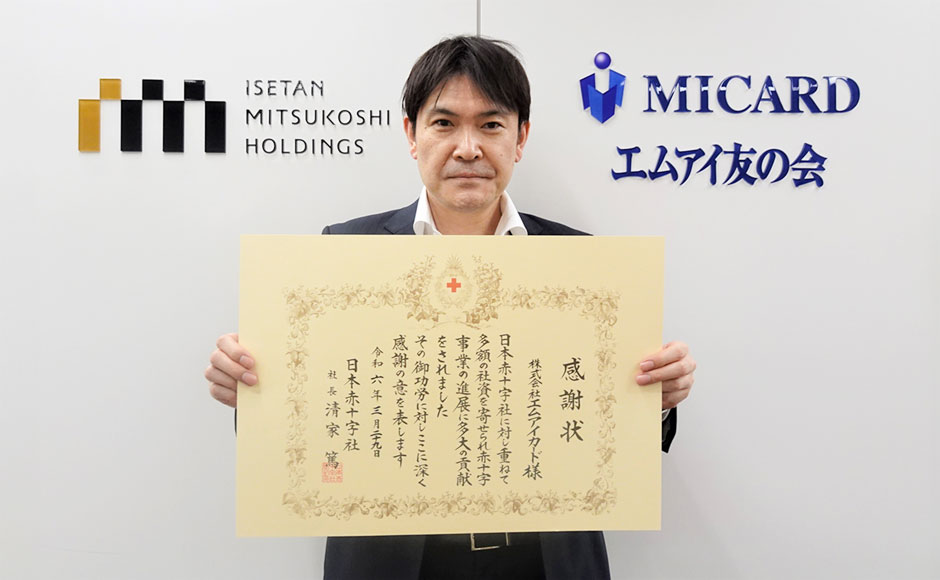 ISETAN
MITSUKOSHI
HOLDINGS
MICARD
エムアイ友の会
感謝状
株式会社エムアイカード様
日本赤十字社に対し重ねて
多額の社資を寄せられ赤十字
事業の進展に多大の貢献
をされました
その御功労に対しここに深く
感謝の意を表します
令和六年三月二十九日
日本赤十字社
社長 清家 篤